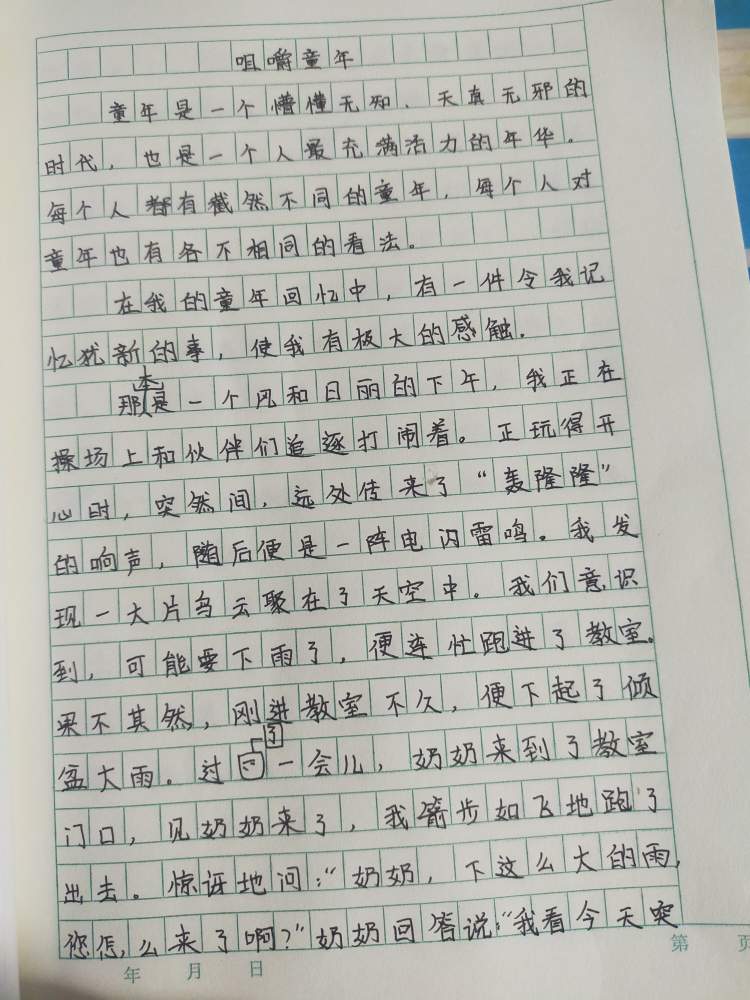 咀嚼童年
童年是一个懵懂无知、天真无邪的
时代，也是一个人最充满活力的年华。
每个人都有截然不同的童年，每个人对
童年也有各不相同的看法。
在我的童年回忆中，有一件令我记
忆犹新的事，使我有极大的感触。
那本是一个风和日丽的下午，我正在
操场上和伙伴们追逐打闹着。正玩得开
心时，突然间，远处传来了“轰隆隆”
的响声，随后便是一阵电闪雷鸣。我发
现一大片乌云聚在了天空中。我们意识
到，可能要下雨了，便连忙跑进了教室。
果不其然，刚进教室不久，便下起了倾
盆大雨。过了一会儿，奶奶来到了教室
门口，见奶奶来了，我箭步如飞地跑了
出去。惊讶地问：“奶奶，下这么大的雨，
您怎么来了啊？”奶奶回答说：“我看今天突
年 月 日
第 页